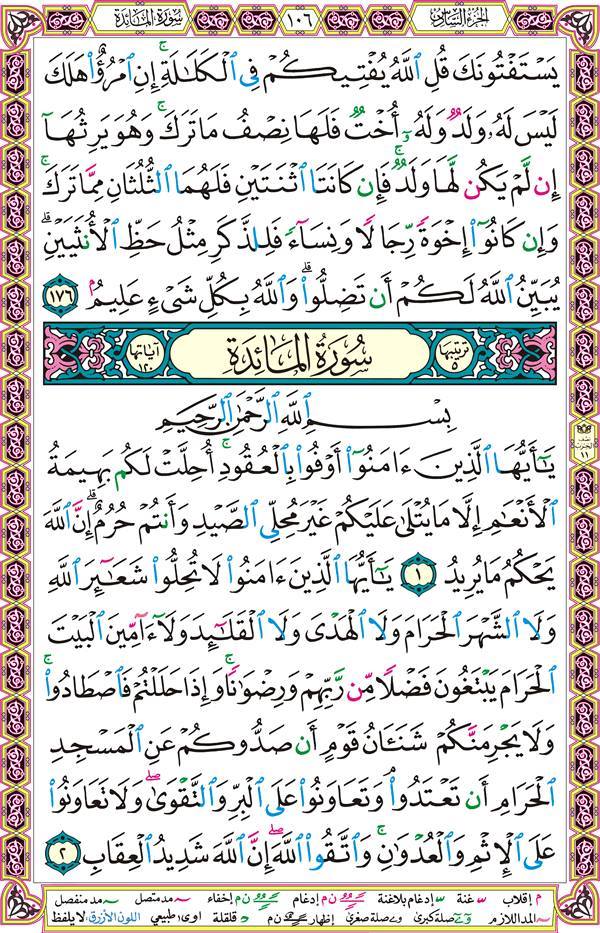 الجزء السادس
١٠٦
سورة المائدة
يَسْتَفْتُونَكَ قُلِ ٱللَّهُ يُفْتِيكُمْ فِى ٱلْكَلَـٰلَةِ ۚ إِنِ ٱمْرُؤٌا۟ هَلَكَ
لَيْسَ لَهُۥ وَلَدٌ وَلَهُۥٓ أُخْتٌ فَلَهَا نِصْفُ مَا تَرَكَ ۚ وَهُوَ يَرِثُهَآ
إِن لَّمْ يَكُن لَّهَا وَلَدٌ ۚ فَإِن كَانَتَا ٱثْنَتَيْنِ فَلَهُمَا ٱلثُّلُثَانِ مِمَّا تَرَكَ ۚ
وَإِن كَانُوٓا۟ إِخْوَةً رِّجَالًا وَنِسَآءً فَلِلذَّكَرِ مِثْلُ حَظِّ ٱلْأُنثَيَيْنِ ۗ
يُبَيِّنُ ٱللَّهُ لَكُمْ أَن تَضِلُّوا۟ ۗ وَٱللَّهُ بِكُلِّ شَىْءٍ عَلِيمٌۢ ١٧٦
ترتيبها ٥
سُورَةُ المَائِدَةِ
آياتها ١٢٠
بِسْمِ ٱللَّهِ ٱلرَّحْمَـٰنِ ٱلرَّحِيمِ
يَـٰٓأَيُّهَا ٱلَّذِينَ ءَامَنُوٓا۟ أَوْفُوا۟ بِٱلْعُقُودِ ۚ أُحِلَّتْ لَكُم بَهِيمَةُ
ٱلْأَنْعَـٰمِ إِلَّا مَا يُتْلَىٰ عَلَيْكُمْ غَيْرَ مُحِلِّى ٱلصَّيْدِ وَأَنتُمْ حُرُمٌ ۗ إِنَّ ٱللَّهَ
يَحْكُمُ مَا يُرِيدُ ١ يَـٰٓأَيُّهَا ٱلَّذِينَ ءَامَنُوا۟ لَا تُحِلُّوا۟ شَعَـٰٓئِرَ ٱللَّهِ
وَلَا ٱلشَّهْرَ ٱلْحَرَامَ وَلَا ٱلْهَدْىَ وَلَا ٱلْقَلَـٰٓئِدَ وَلَآ ءَآمِّينَ ٱلْبَيْتَ
ٱلْحَرَامَ يَبْتَغُونَ فَضْلًا مِّن رَّبِّهِمْ وَرِضْوَٰنًا ۚ وَإِذَا حَلَلْتُمْ فَٱصْطَادُوا۟ ۚ
وَلَا يَجْرِمَنَّكُمْ شَنَـَٔانُ قَوْمٍ أَن صَدُّوكُمْ عَنِ ٱلْمَسْجِدِ
ٱلْحَرَامِ أَن تَعْتَدُوا۟ ۘ وَتَعَاوَنُوا۟ عَلَى ٱلْبِرِّ وَٱلتَّقْوَىٰ ۖ وَلَا تَعَاوَنُوا۟
عَلَى ٱلْإِثْمِ وَٱلْعُدْوَٰنِ ۚ وَٱتَّقُوا۟ ٱللَّهَ ۖ إِنَّ ٱللَّهَ شَدِيدُ ٱلْعِقَابِ ٢
نصف الحزب ١١
م إقلاب غنة إدغام بلاغنة ن م إدغام ن م إخفاء مد متصل مد منفصل
المد اللازم صلة كبرى صلة صغرى إظهار ن م قلقلة اوى طبيعي اللون الأزرق: لا يلفظ